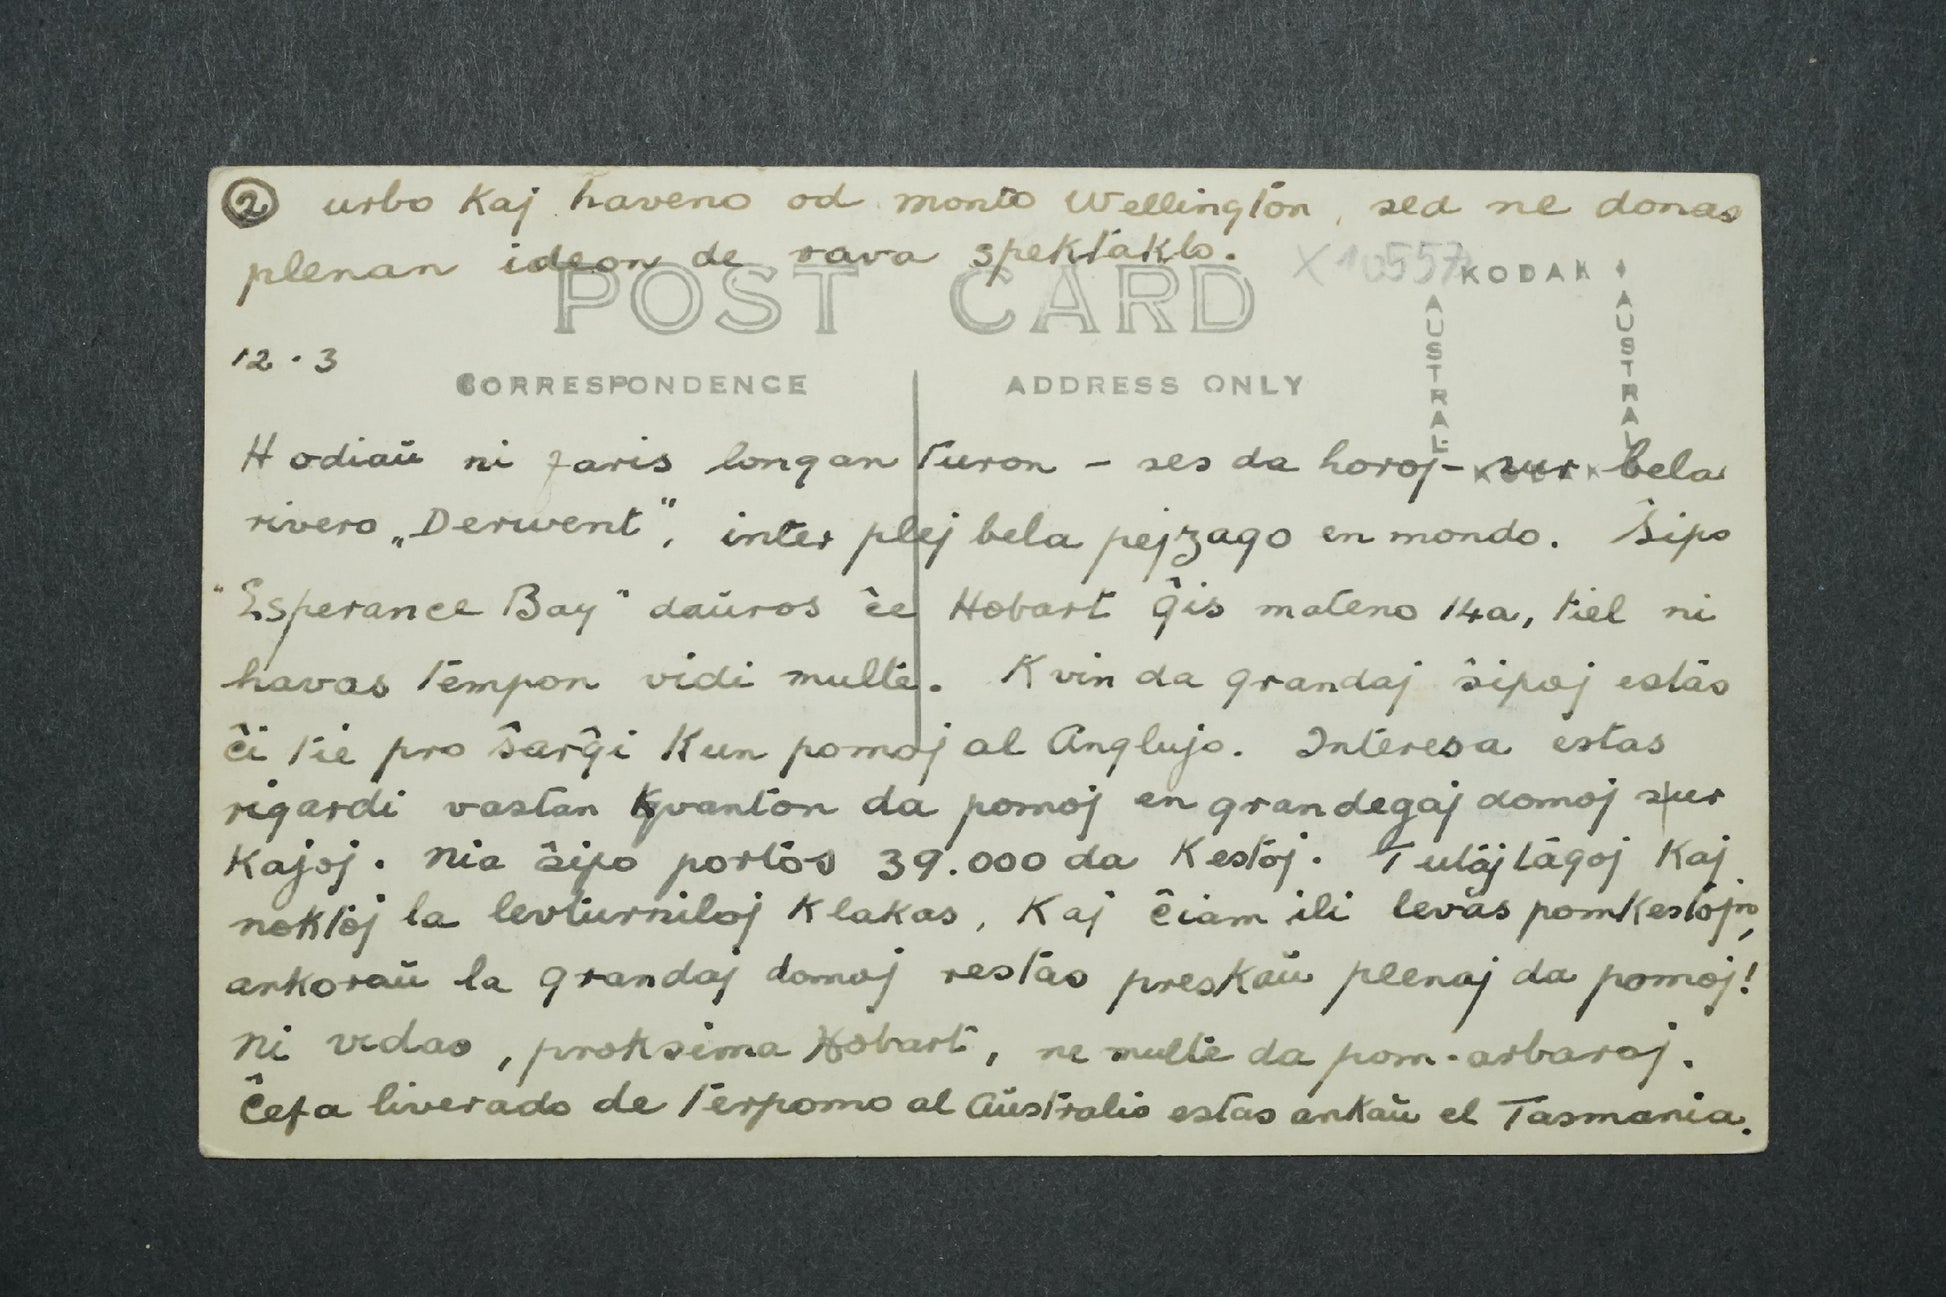 ② urbo kaj haveno od monto Wellington, sed ne donas
plenan ideon de rava spektaklo.
X 10557
KODAK
AUSTRAL
AUSTRAL
POST CARD
12.3
CORRESPONDENCE
ADDRESS ONLY
Hodiaŭ ni faris longan turon - ses da horoj - sur bela
rivero „Derwent", inter plej bela pejzago en mondo. Ŝipo
"Esperance Bay" daŭros ĉe Hobart ĝis mateno 14a, tiel ni
havas tempon vidi multe. Kvin da grandaj ŝipoj estas
ĉi tie pro ŝarĝi kun pomoj al Anglujo. Interesa estas
rigardi vastan kvanton da pomoj en grandegaj domoj sur
kajoj. Nia ŝipo portos 39.000 da kestoj. Tutaj tagoj kaj
noktoj la levturniloj klakas, kaj ĉiam ili levas pomkestojn,
ankoraŭ la grandaj domoj restas preskaŭ plenaj da pomoj!
Ni vidas, proksima Hobart, ne multe da pom-arbaroj.
Ĉefa liverado de terpomo al Aŭstralio estas ankaŭ el Tasmania.